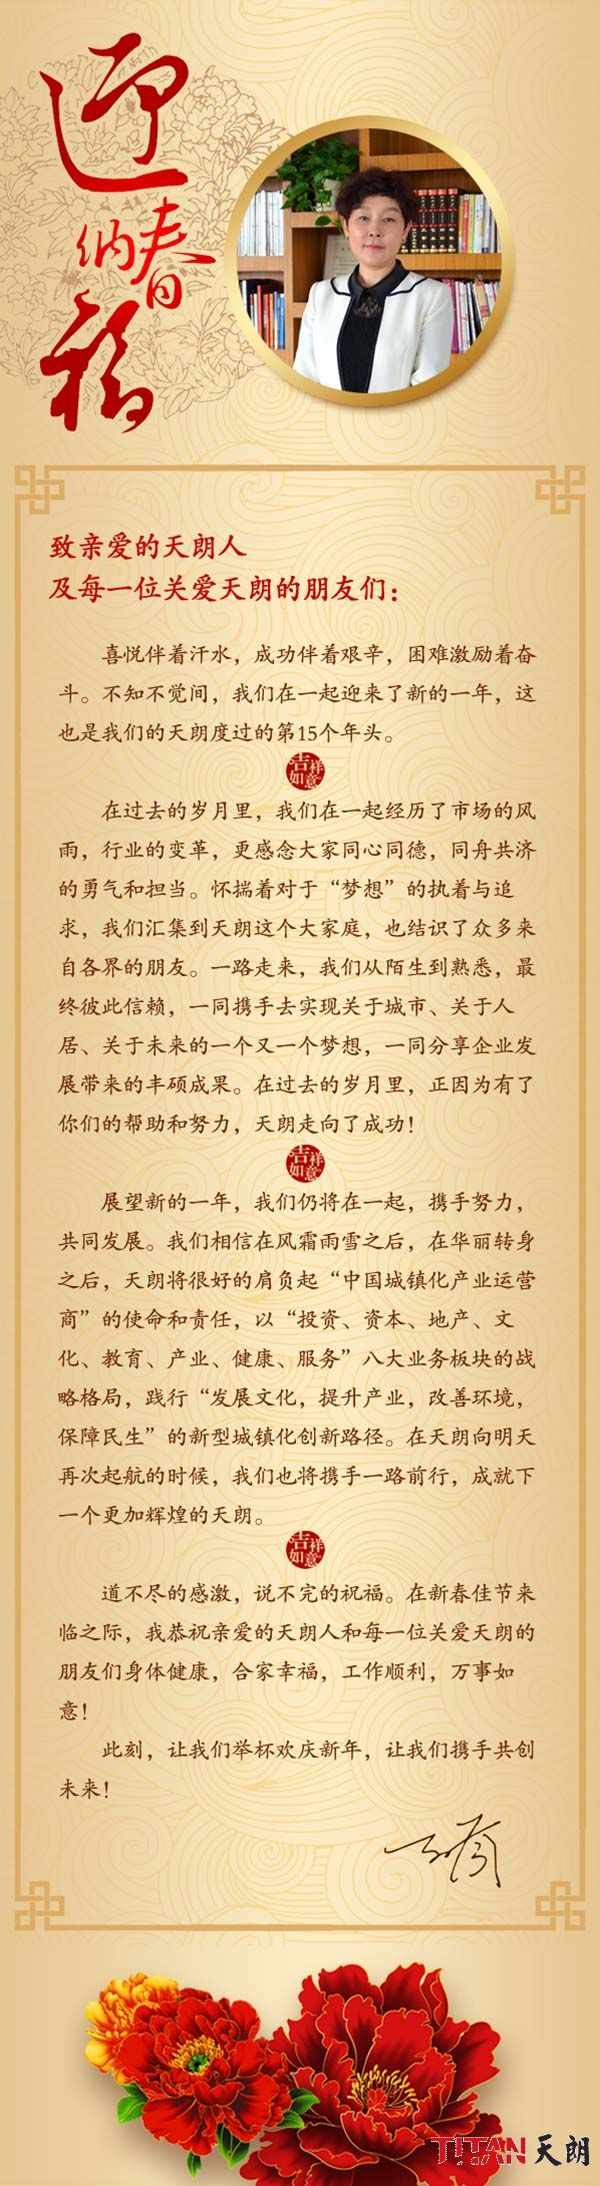 迎春
纳福
致亲爱的天朗人
及每一位关爱天朗的朋友们：
喜悦伴着汗水，成功伴着艰辛，困难激励着奋
斗。不知不觉间，我们在一起迎来了新的一年，这
也是我们的天朗度过的第15个年头。
吉祥
如意
在过去的岁月里，我们在一起经历了市场的风
雨，行业的变革，更感念大家同心同德，同舟共济
的勇气和担当。怀揣着对于“梦想”的执着与追
求，我们汇集到天朗这个大家庭，也结识了众多来
自各界的朋友。一路走来，我们从陌生到熟悉，最
终彼此信赖，一同携手去实现关于城市、关于人
居、关于未来的一个又一个梦想，一同分享企业发
展带来的丰硕成果。在过去的岁月里，正因为有了
你们的帮助和努力，天朗走向了成功！
吉祥
如意
展望新的一年，我们仍将在一起，携手努力，
共同发展。我们相信在风霜雨雪之后，在华丽转身
之后，天朗将很好的肩负起“中国城镇化产业运营
商”的使命和责任，以“投资、资本、地产、文
化、教育、产业、健康、服务”八大业务板块的战
略格局，践行“发展文化，提升产业，改善环境，
保障民生”的新型城镇化创新路径。在天朗向明天
再次起航的时候，我们也将携手一路前行，成就下
一个更加辉煌的天朗。
吉祥
如意
道不尽的感激，说不完的祝福。在新春佳节来
临之际，我恭祝亲爱的天朗人和每一位关爱天朗的
朋友们身体健康，合家幸福，工作顺利，万事如
意！
此刻，让我们举杯欢庆新年，让我们携手共创
未来！
TITAN 天朗